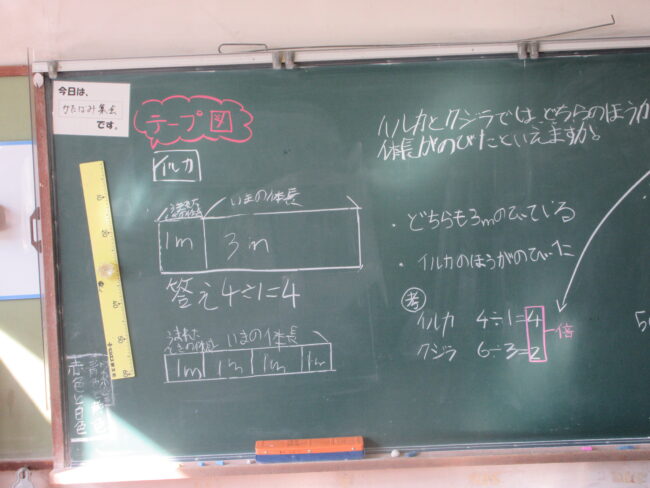 今日は、
かたばみ集会
です。
テープ図
イルカ
いまの体長
1m 3m
答え 4÷1=4
うまれた
ときの体長 いまの体長
1m 1m 1m 1m
イルカとクジラでは、どちらのほうが
体長がのびたといえますか。
・どちらも3mのびている
・イルカのほうがのびた
考
イルカ 4÷1=4
クジラ 6÷3=2
倍
赤色と白色